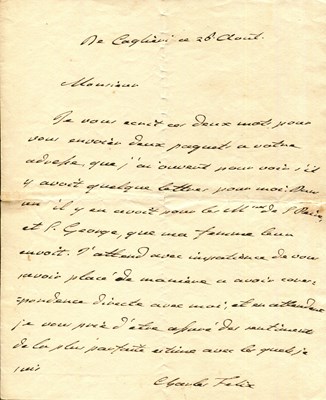 De Cagliari ce 28 Aout.
Monsieur
Je vous ecrit ces deux mots pour
vous envoier deux paquets a votre
adresse, que j'ai ouvert pour voir s'il
y avoit quelque lettres pour moi: Dans
un il y en avoit pour les M. de S.
et S. George, que ma femme leur
envoit. J'attend avec impatience de vous
savoir placé de maniere a avoir corre-
spondence directe avec moi; et en attendant
je vous prie d'être assuré du sentiment
de la plus parfaite estime avec lequel je
suis
Charles Felix